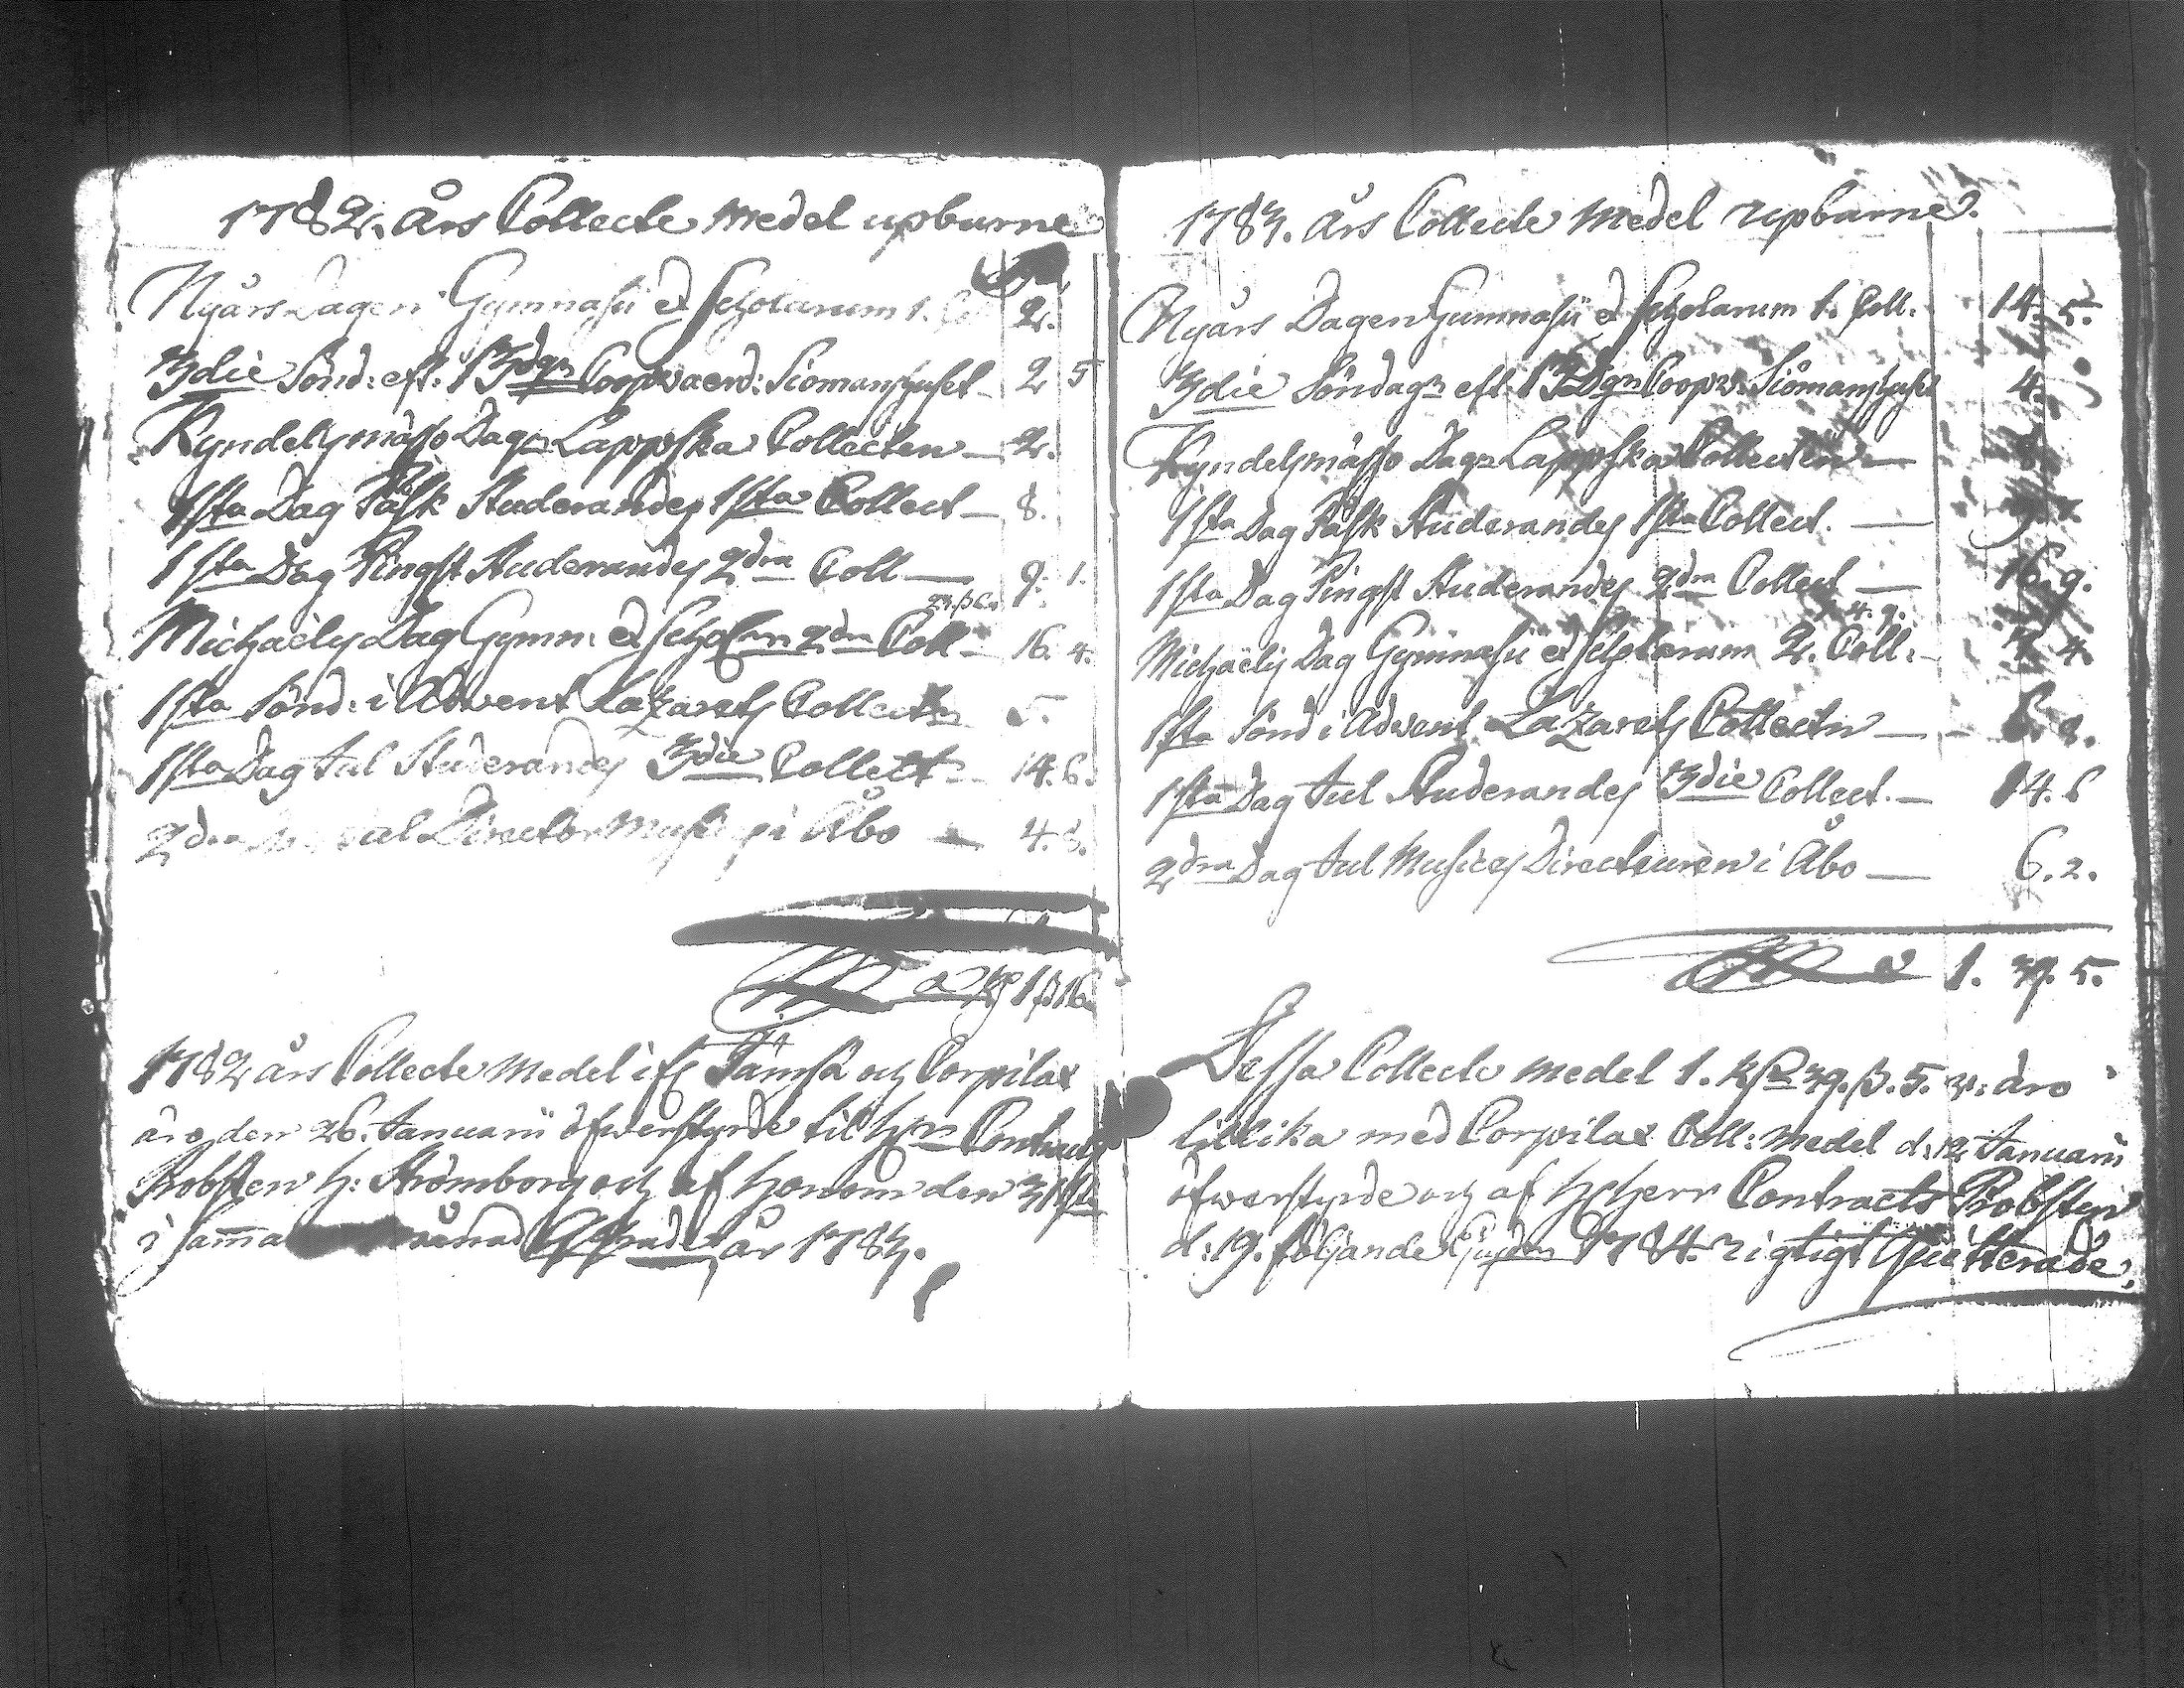 1782. års Collecte medel upburne
Nyårs Dagen Gymnasii et Scholarum 1. 2.
3die Sönd: eft: 13dgn Coopvaerd: Siömanshuset 2 5
Kyndelsmässo Dagn Lappska Collecten 2.
1sta Dag Påsk Studerandes 1sta Collect 8.
1sta Dag Pingst Studerandes 2dra Coll 9. 1.
Michaëlis Dag Gymn: et Scholrm 2dra Coll 16. 4.
1sta Sönd: i Advent Lazarets Collectn 5.
1sta Dag Jul Studerandes 3die Collect 14. 6.
2dra Jul Director Musices i Åbo 4. 8.
1 16
1782 års Collecte Medel ifr Jämsä och Corpilax
äro den 26. Januarii öfwerstyrde til Hrn Contracts
Probsten H: Strömborg och af honom den 31sta
i samma månad år 1783.
1783. års Collecte Medel upburne.
Nyårs Dagen Gymnasii et Scholarum 1. Coll. 14. 5.
3die Söndagn eft 13Dgn Coopv: Siömanshuset 4.
Kyndelsmässo Dagn Lappska Collecten 8.
1sta Dag Påsk Studerandes 1sta Collect.
1sta Dag Pingst Studerandes 2dra Collect 16. 9.
4. 9.
Michaëlis Dag Gymnasii et Scholarum 2. Coll: 4.
1sta Sönd i Advent Lazarets Collectn 6.
1sta Dag Jul Studerandes 3die Collect. 14. 6
2dra Dag Jul Musices Directeuren i Åbo 6. 2.
1. 39. 5.
Dessa Collecte medel 1. 39. ß. 5. äro
tillika med Corpilax Coll: medel d: 12 Januarii
öfwerstyrde och af H Herr Contracts Probsten
d: 19. följande 1784. rigtigt Quitterade.